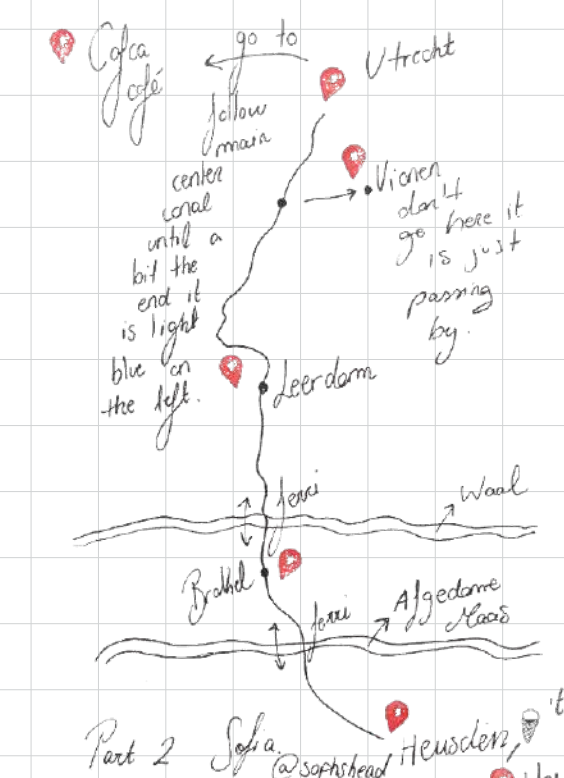 go to
Cofca
café
Utrecht
follow
main
center
canal
until a
bit the
end it
is light
blue on
the left.
Vianen
don't
go here it
is just
passing
by.
Leerdam
ferri
Waal
Brakel
ferri
Afgedame
Maas
Heusden,
't
Part 2 Sofia.
@sophshead